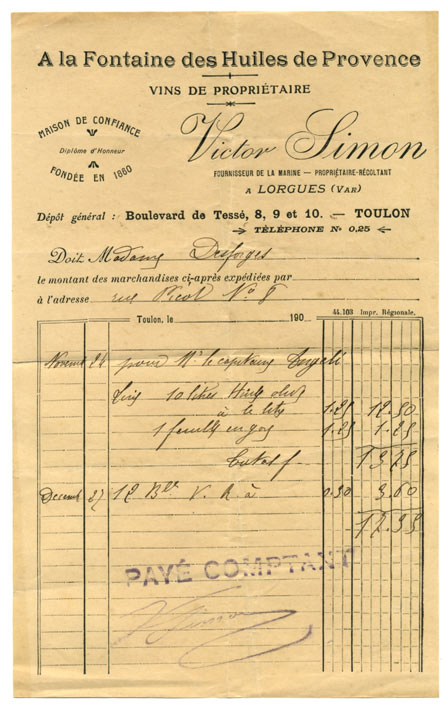 A la Fontaine des Huiles de Provence
VINS DE PROPRIÉTAIRE
MAISON DE CONFIANCE
Diplôme d'Honneur
FONDÉE EN 1860
Victor Simon
FOURNISSEUR DE LA MARINE — PROPRIÉTAIRE-RÉCOLTANT
A LORGUES (VAR)
Dépôt général : Boulevard de Tessé, 8, 9 et 10. — TOULON
TÉLÉPHONE No 0,25
Doit Madame Desforges
le montant des marchandises ci-après expédiées par
à l'adresse rue Picot No 8
Toulon, le 190 44.103 Impr. Régionale.
Novemb 24 pour Mr le capitaine
10 litres Huile
à le litre 1.25 12.50
1 1.25 1.25
Total f 13.75
Decemb 27 12 Blles V. R. à 0.30 3.60
17.35
PAYÉ COMPTANT
V Simon